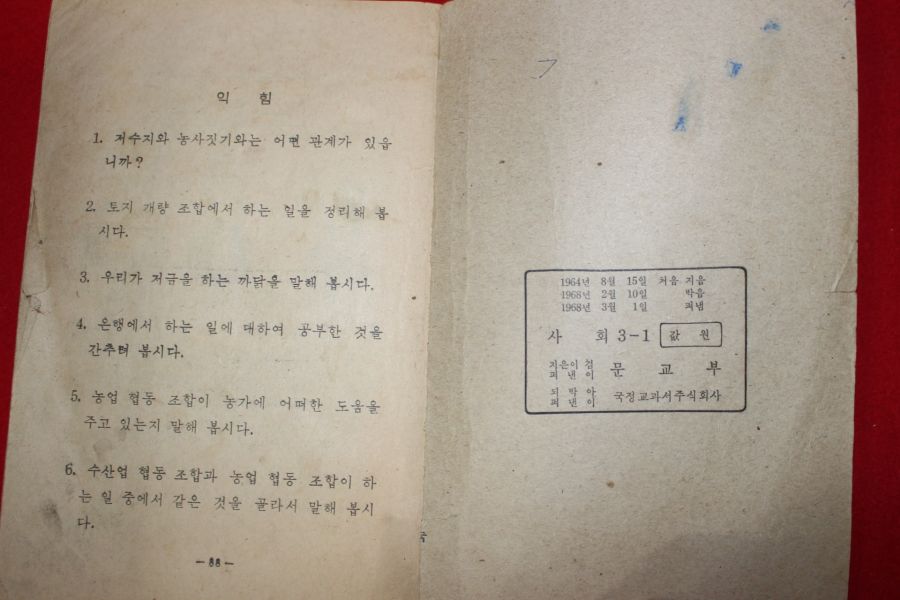 익 힘
1. 저수지와 농사짓기와는 어떤 관계가 있읍
니까?
2. 토지 개량 조합에서 하는 일을 정리해 봅
시다.
3. 우리가 저금을 하는 까닭을 말해 봅시다.
4. 은행에서 하는 일에 대하여 공부한 것을
간추려 봅시다.
5. 농업 협동 조합이 농가에 어떠한 도움을
주고 있는지 말해 봅시다.
6. 수산업 협동 조합과 농업 협동 조합이 하
는 일 중에서 같은 것을 골라서 말해 봅시
다.
—88—
1964년 8월 15일 처음 지음
1968년 2월 10일 박음
1968년 3월 1일 펴냄
사 회 3-1 값 원
지은이 겸
펴 낸 이 문 교 부
되 박 아
펴 낸 이 국정교과서주식회사